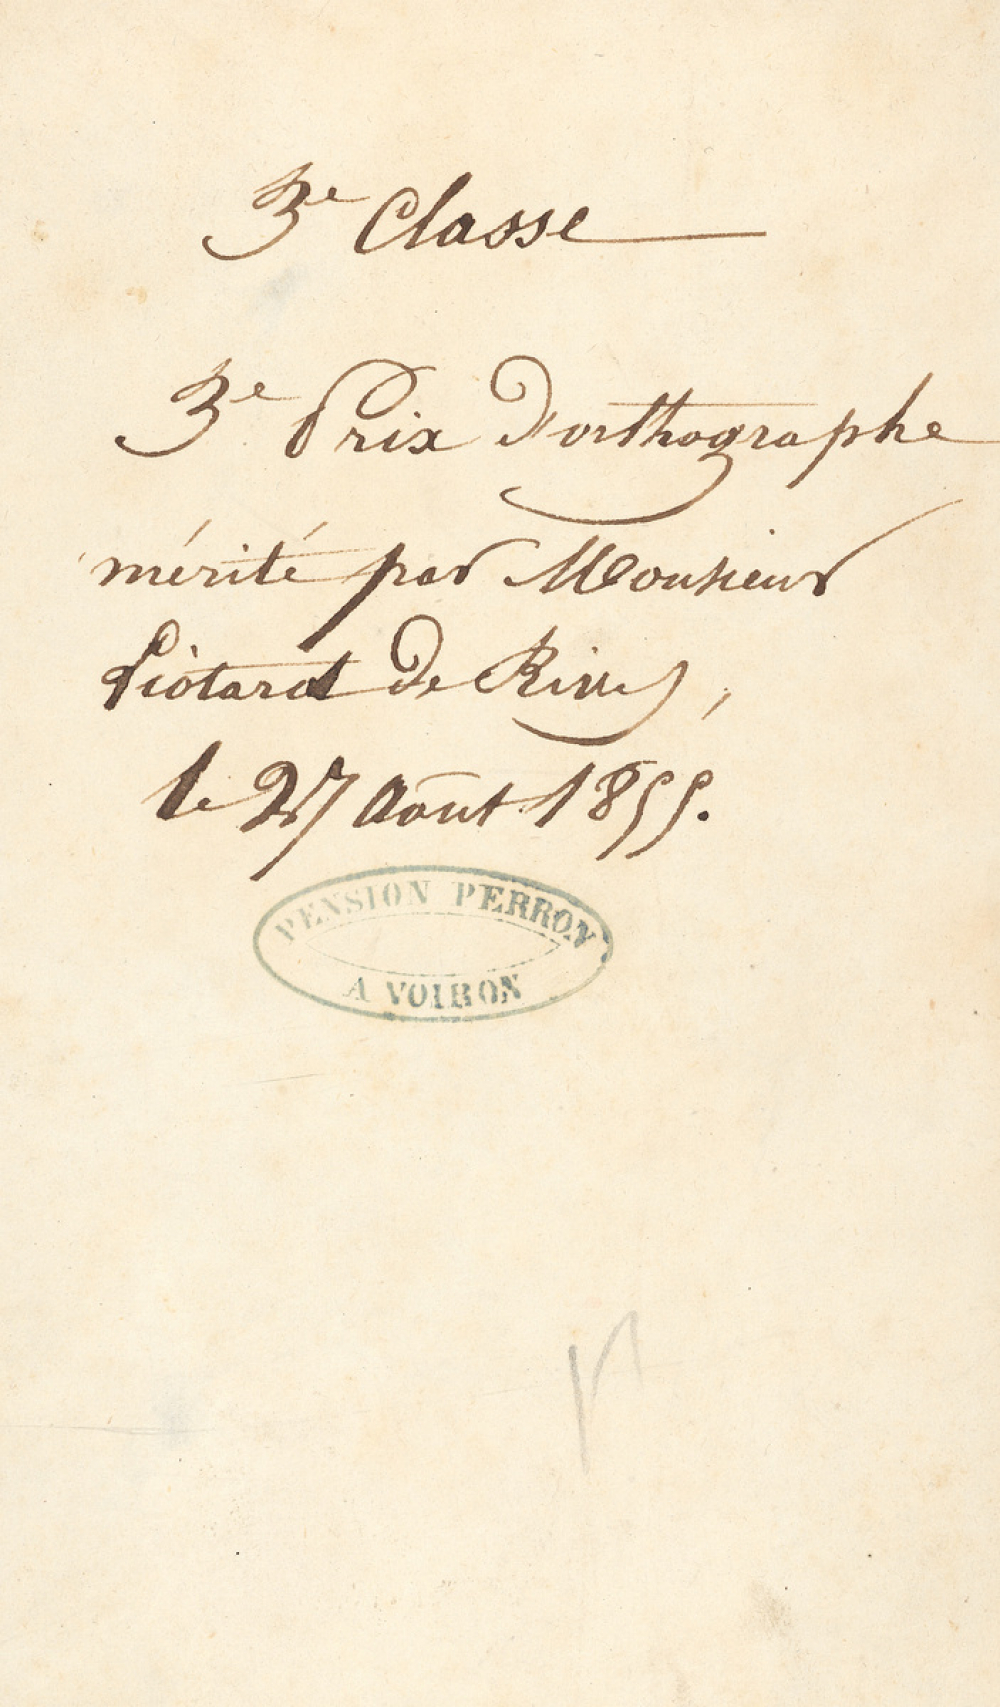 3e Classe
3e Prix D'orthographe
mérité par Monsieur
Piotard de Rives,
le 27 Août 1855.
PENSION PERRON
A VOIRON